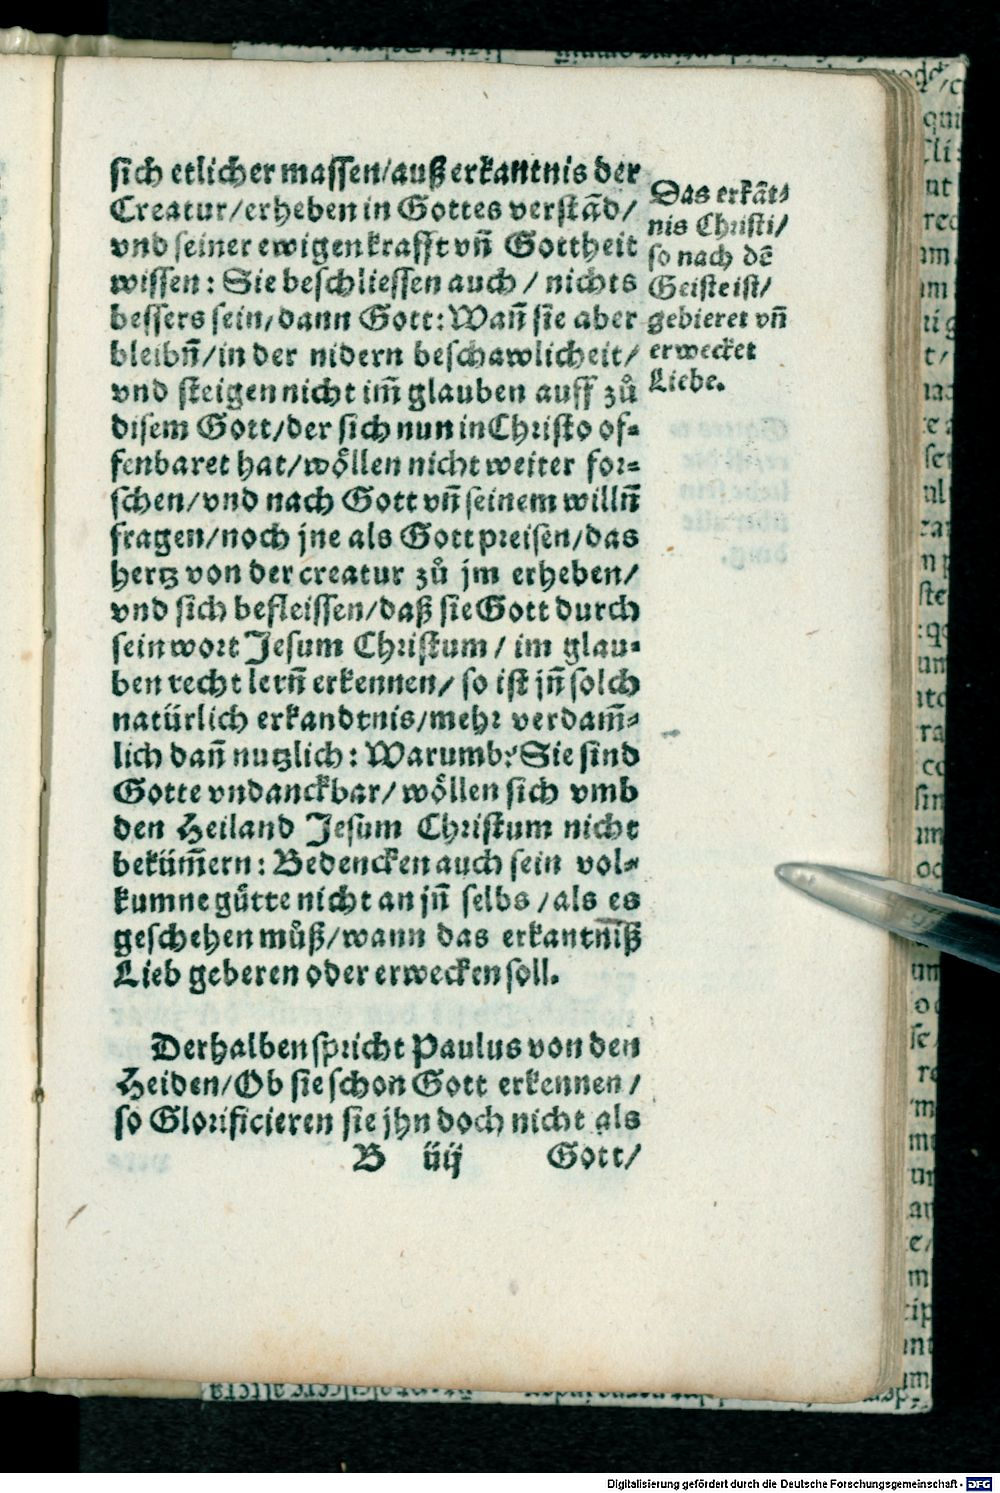 sich etlicher massen/auß erkantnis der
Creatur/erheben in Gottes verstãd/
vnd seiner ewigen krafft vñ Gottheit
wissen: Sie beschliessen auch / nichts
bessers sein/dann Gott: Wañ sie aber
bleibñ/in der nidern beschawlicheit/
vnd steigen nicht im̃ glauben auff zů
disem Gott/der sich nun in Christo of-
fenbaret hat/wöllen nicht weiter for-
schen/vnd nach Gott vñ seinem willñ
fragen/noch jne als Gott preisen/das
hertz von der creatur zů jm erheben/
vnd sich befleissen/daß sie Gott durch
sein wort Jesum Christum / im glau-
ben recht lerñ erkennen/ so ist jñ solch
natürlich erkandtnis/mehr verdam̃-
lich dañ nutzlich: Warumb? Sie sind
Gotte vndanckbar/ wöllen sich vmb
den Heiland Jesum Christum nicht
beküm̃ern: Bedencken auch sein vol-
kumne gütte nicht an jñ selbs /als es
geschehen můß/wann das erkantniß
Lieb geberen oder erwecken soll.
Derhalben spricht Paulus von den
Heiden/Ob sie schon Gott erkennen/
so Glorificieren sie jhn doch nicht als
B iiij Gott/
Das erkãt-
nis Christi/
so nach dẽ
Geiste ist/
gebieret vñ
erwecket
Liebe.
Digitalisierung gefördert durch die Deutsche Forschungsgemeinschaft - DFG